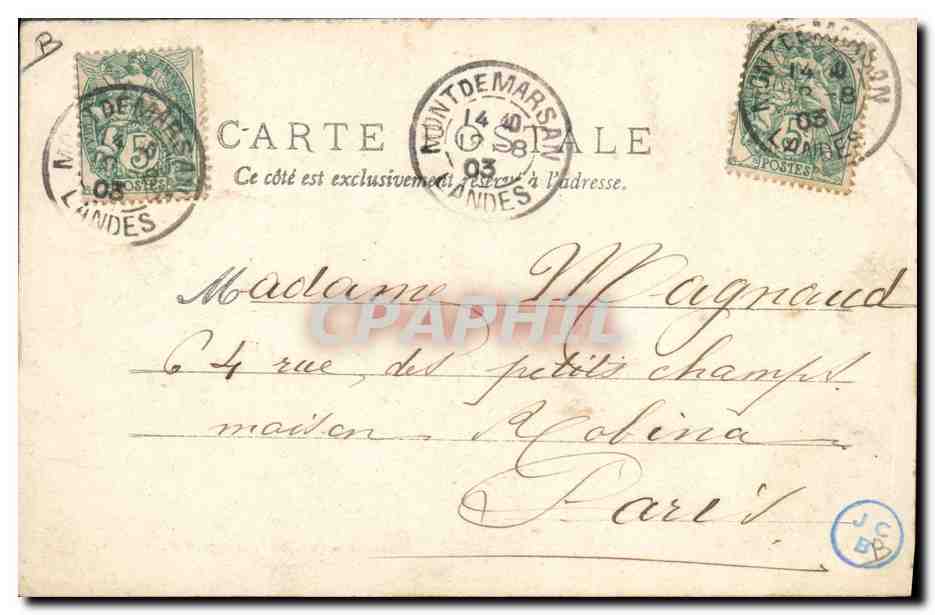 B
MONT DE MARSAN
5
POSTES
03
LANDES
MONT DE MARSAN
14 40
19 8
03
LANDES
MONT DE MARSAN
14 40
8
5
03
POSTES
LANDES
CARTE POSTALE
Ce côté est exclusivement réservé à l'adresse.
Madame Magnaud
64 rue des petits champs
maison Robina
Paris
CPAPHIL
J C
B
B